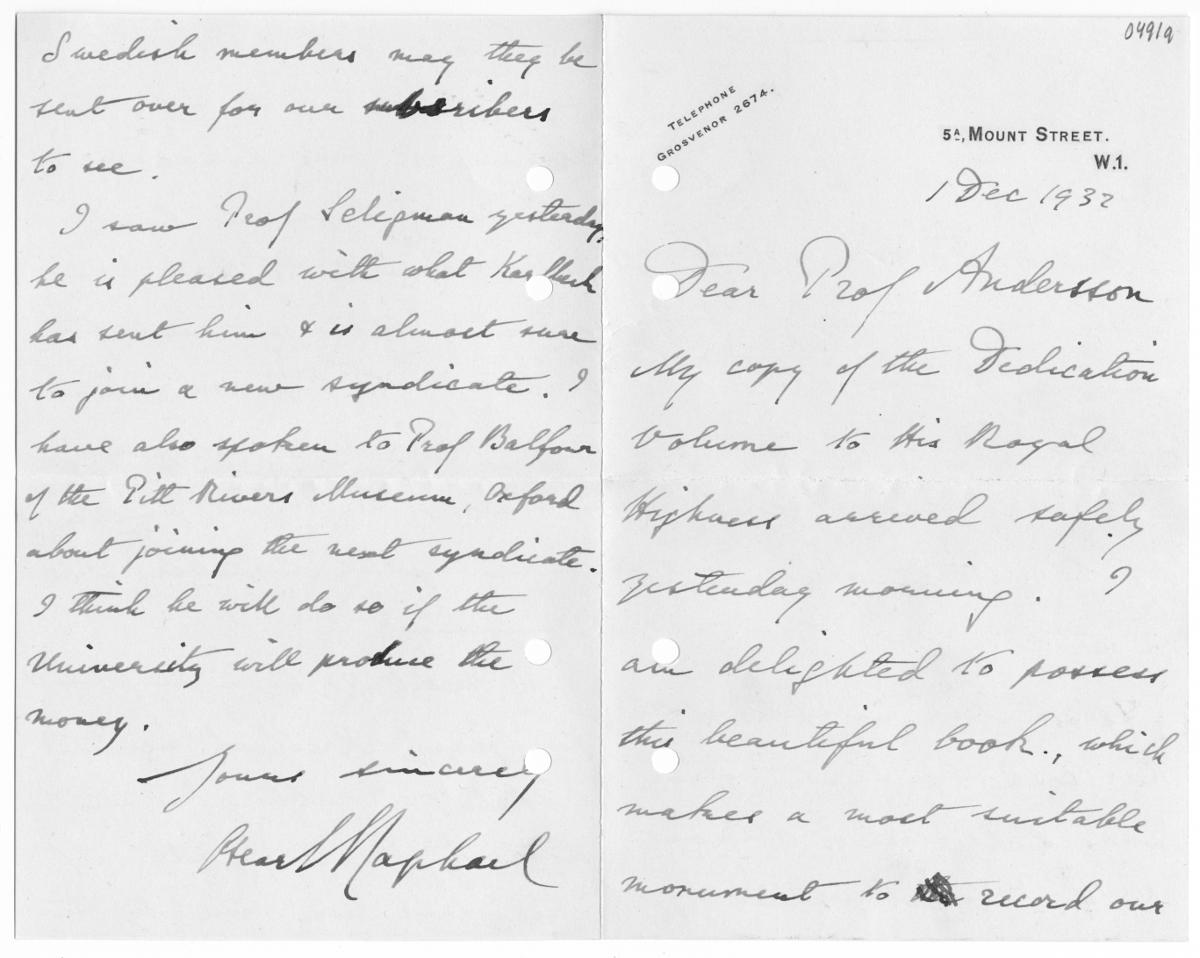 0491a
TELEPHONE
GROSVENOR 2674.
5A, MOUNT STREET.
W.1.
1 Dec 1932
Dear Prof Andersson
My copy of the Dedication
Volume to His Royal
Highness arrived safely
yesterday morning. I
am delighted to possess
this beautiful book., which
makes a most suitable
monument to record our
Swedish members may they be
sent over for our subscribers
to see.
I saw Prof Seligman yesterday,
he is pleased with what Karlbeck
has sent him & is almost sure
to join a new syndicate. I
have also spoken to Prof Balfour
of the Pitt Rivers Museum, Oxford
about joining the next syndicate.
I think he will do so if the
University will produce the
money.
Yours sincerely
Oscar Raphael